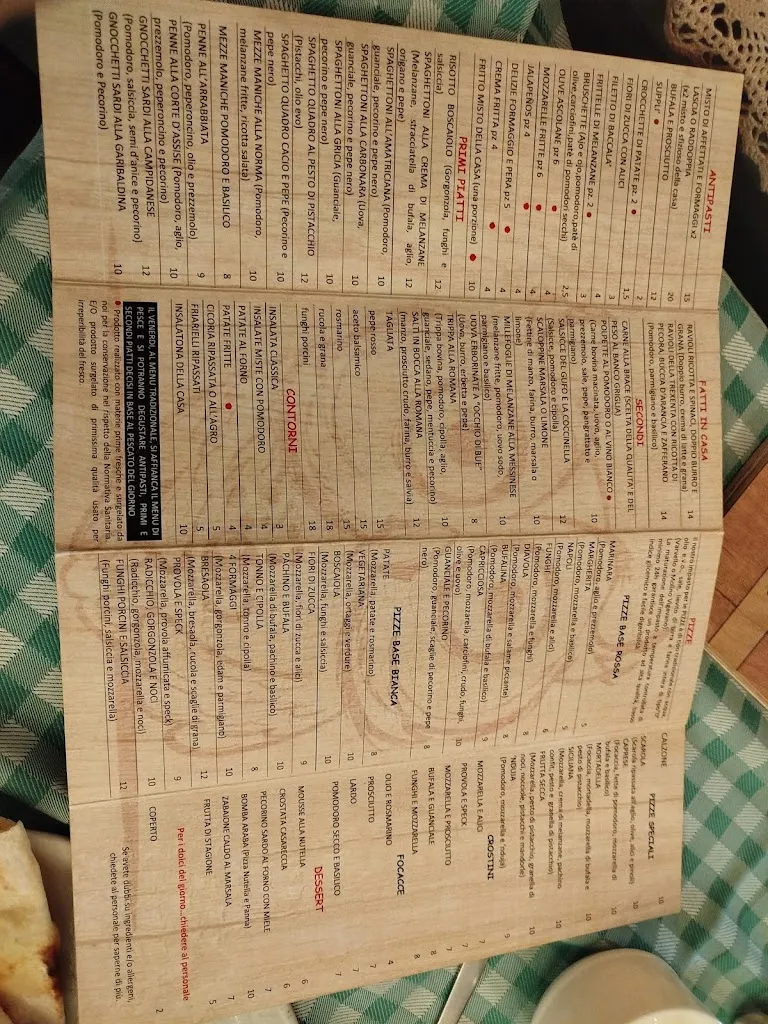 ANTIPASTI
MISTO DI AFFETTATI E FORMAGGI x2 15
LASCIA O RADDOPPIA
(x2 misto e sfinoso della casa) 20
BUFALA E PROSCIUTTO 12
SUPPLI'
CROCCHETTE DI PATATE pz 2 2
FIORI DI ZUCCA CON ALICI 1,5
FILETTO DI BACCALA' 4
FRITTELLE DI MELANZANE pz 2 4
BRUSCHETTE (Ajo e ojo,pomodoro,patè di 3
olive,carciofini,patè di pomodori secchi)
OLIVE ASCOLANE pz 6 2,5
MOZZARELLE FRITTE pz 6 4
JALAPEÑOS pz 4 4
DELIZIE FORMAGGIO E PERA pz 5
CREMA FRITTA pz 4 4
FRITTO MISTO DELLA CASA (una porzione) 10
PRIMI PIATTI
RISOTTO BOSCAIOLO (Gorgonzola, funghi e 12
salsiccia)
SPAGHETTONI ALLA CREMA DI MELANZANE
(Melanzane, stracciatella di bufala, aglio, 12
origano e pepe)
SPAGHETTONI ALL'AMATRICIANA (Pomodoro, 10
guanciale, pecorino e pepe nero)
SPAGHETTONI ALLA CARBONARA (Uova,
guanciale, pecorino e pepe nero) 10
SPAGHETTONI ALLA GRICIA (Guanciale,
pecorino e pepe nero) 10
SPAGHETTO QUADRO AL PESTO DI PISTACCHIO
(Pistacchi, olio evo) 12
SPAGHETTO QUADRO CACIO E PEPE (Pecorino e
pepe nero) 10
MEZZE MANICHE ALLA NORMA (Pomodoro,
melanzane fritte, ricotta salata) 10
MEZZE MANICHE POMODORO E BASILICO 8
PENNE ALL'ARRABBIATA
(Pomodoro, peperoncino, olio e prezzemolo) 9
PENNE ALLA CORTE D'ASSISE (Pomodoro, aglio,
prezzemolo, peperoncino e pecorino) 10
GNOCCHETTI SARDI ALLA CAMPIDANESE
(Pomodoro, salsiccia, semi d'anice e pecorino) 12
GNOCCHETTI SARDI ALLA GARIBALDINA
(Pomodoro e Pecorino) 10
FATTI IN CASA
RAVIOLI RICOTTA E SPINACI, DOPPIO BURRO E
GRANA (Doppio burro, crema di latte e grana) 14
RAVIOLI DELLA TREXENTA CON RICOTTA DI
PECORA, BUCCIA D'ARANCIA E ZAFFERANO
(Pomodoro, parmigiano e basilico) 14
SECONDI
CARNE ALLA BRACE (SCELTA DELLA QUALITA' E DEL
PESO AL BANCO GRIGLIA)
POLPETTE AL POMODORO O AL VINO BIANCO
(Carne bovina macinata, uovo, aglio, 10
prezzemolo, sale, pepe, pangrattato e
parmigiano)
SALSICCE DEL GUFO E LA COCCINELLA
(Salsicce, pomodoro e cipolla) 12
SCALOPPINE MARSALA O LIMONE
(Fettine di manzo, farina, burro, marsala o
limone) 10
MILLEFOGLIE DI MELANZANE ALLA MESSINESE
(melanzane fritte, pomodoro, uovo sodo,
parmigiano e basilico) 10
UOVA ERBORINATE A "OCCHIO DI BUE"
(Uovo, burro, erbetta e pepe) 8
TRIPPA ALLA ROMANA
(Trippa bovina, pomodoro, cipolla, aglio,
guanciale, sedano, pepe, mentuccia e pecorino) 10
SALTI IN BOCCA ALLA ROMANA
(manzo, prosciutto crudo, farina, burro e salvia) 12
TAGLIATA
pepe rosso 15
aceto balsamico 15
rosmarino 15
rucola e grana 18
funghi porcini 18
CONTORNI
INSALATA CLASSICA 3
INSALATE MISTE CON POMODORO 4
PATATE AL FORNO 4
PATATE FRITTE 4
CICORIA RIPASSATA O ALL'AGRO 5
FRIARIELLI RIPASSATI 5
INSALATONA DELLA CASA 10
IL VENERDI, AL MENU TRADIZIONALE, SI AFFIANCA IL MENU DI
PESCE E SI POTRANNO DEGUSTARE ANTIPASTI, PRIMI E
SECONDI PIATTI DECISI IN BASE AL PESCATO DEL GIORNO
Prodotto realizzato con materie prime fresche e surgelato da
noi per la conservazione nel rispetto della Normativa Sanitaria
E/O prodotto surgelato di primissima qualità usato per
irreperibilità del fresco.
PIZZE
PIZZE BASE ROSSA
MARINARA
(Pomodoro, aglio e prezzemolo) 5
MARGHERITA
(Pomodoro, mozzarella e basilico) 5
NAPOLI
(Pomodoro, mozzarella e alici) 6
FUNGHI
(Pomodoro, mozzarella e funghi)
DIAVOLA
(Pomodoro, mozzarella e salame piccante)
BUFALINA
(Pomodoro, mozzarella di bufala e basilico) 8
CAPRICCIOSA
(Pomodoro, mozzarella, carciofini, crudo, funghi,
olive e uovo) 10
GUANCIALE E PECORINO
(Pomodoro, guanciale, scaglie di pecorino e pepe
nero) 8
PIZZE BASE BIANCA
PATATE
(Mozzarella, patate e rosmarino) 8
VEGETARIANA
(Mozzarella, ortaggi e verdure)
BOSCAIOLA
(Mozzarella, funghi e salsiccia) 10
FIORI DI ZUCCA
(Mozzarella, fiori di zucca e alici)
PACHINO E BUFALA
(Mozzarella di bufala, pachino e basilico) 10
TONNO E CIPOLLA
(Mozzarella, tonno e cipolla) 8
4 FORMAGGI
(Mozzarella, gorgonzola, edam e parmigiano) 10
BRESAOLA
(Mozzarella, bresaola, rucola e scaglie di grana) 12
PROVOLA E SPECK
(Mozzarella, provola affumicata e speck) 9
RADICCHIO, GORGONZOLA E NOCI
(Radicchio, gorgonzola, mozzarella e noci) 10
FUNGHI PORCINI E SALSICCIA
(Funghi porcini, salsiccia e mozzarella) 12
CALZONE 10
PIZZE SPECIALI
SCAROLA
(Scarola ripassata all'aglio, olive, alici e pinoli) 10
CAPRESE
(Focaccia, fette di pomodoro, mozzarella di
bufala e basilico) 10
MORTADELLA
(Focaccia, mortadella, mozzarella di bufala e
pesto di pistacchio) 10
SICILIANA
(Mozzarella, crema di melanzane, pachino
confit, pesto e granella di pistacchio) 10
FRUTTA SECCA
(Mozzarella, pesto di pistacchio, granella di
noci, nocciole, pistacchi e mandorle) 10
'NDUJA
(Pomodoro, mozzarella e 'nduja) 9
CROSTINI
MOZZARELLA E ALICI 7
PROVOLA E SPECK 7
MOZZARELLA E PROSCIUTTO 7
BUFALA E GUANCIALE 8
FUNGHI E MOZZARELLA 8
FOCACCE
OLIO E ROSMARINO 4
PROSCIUTTO 7
LARDO 7
POMODORO SECCO E BASILICO 7
DESSERT
MOUSSE ALLA NUTELLA 6
CROSTATA CASARECCIA 6
PECORINO SARDO AL FORNO CON MIELE 7
BOMBA ARABA (Pizza Nutella e Panna) 10
ZABAIONE CALDO AL MARSALA 7
FRUTTA DI STAGIONE 5
Per i dolci del giorno...chiedere al personale
COPERTO 2
Se avete dubbi su ingredienti e/o allergeni,
chiedete al personale per saperne di più.